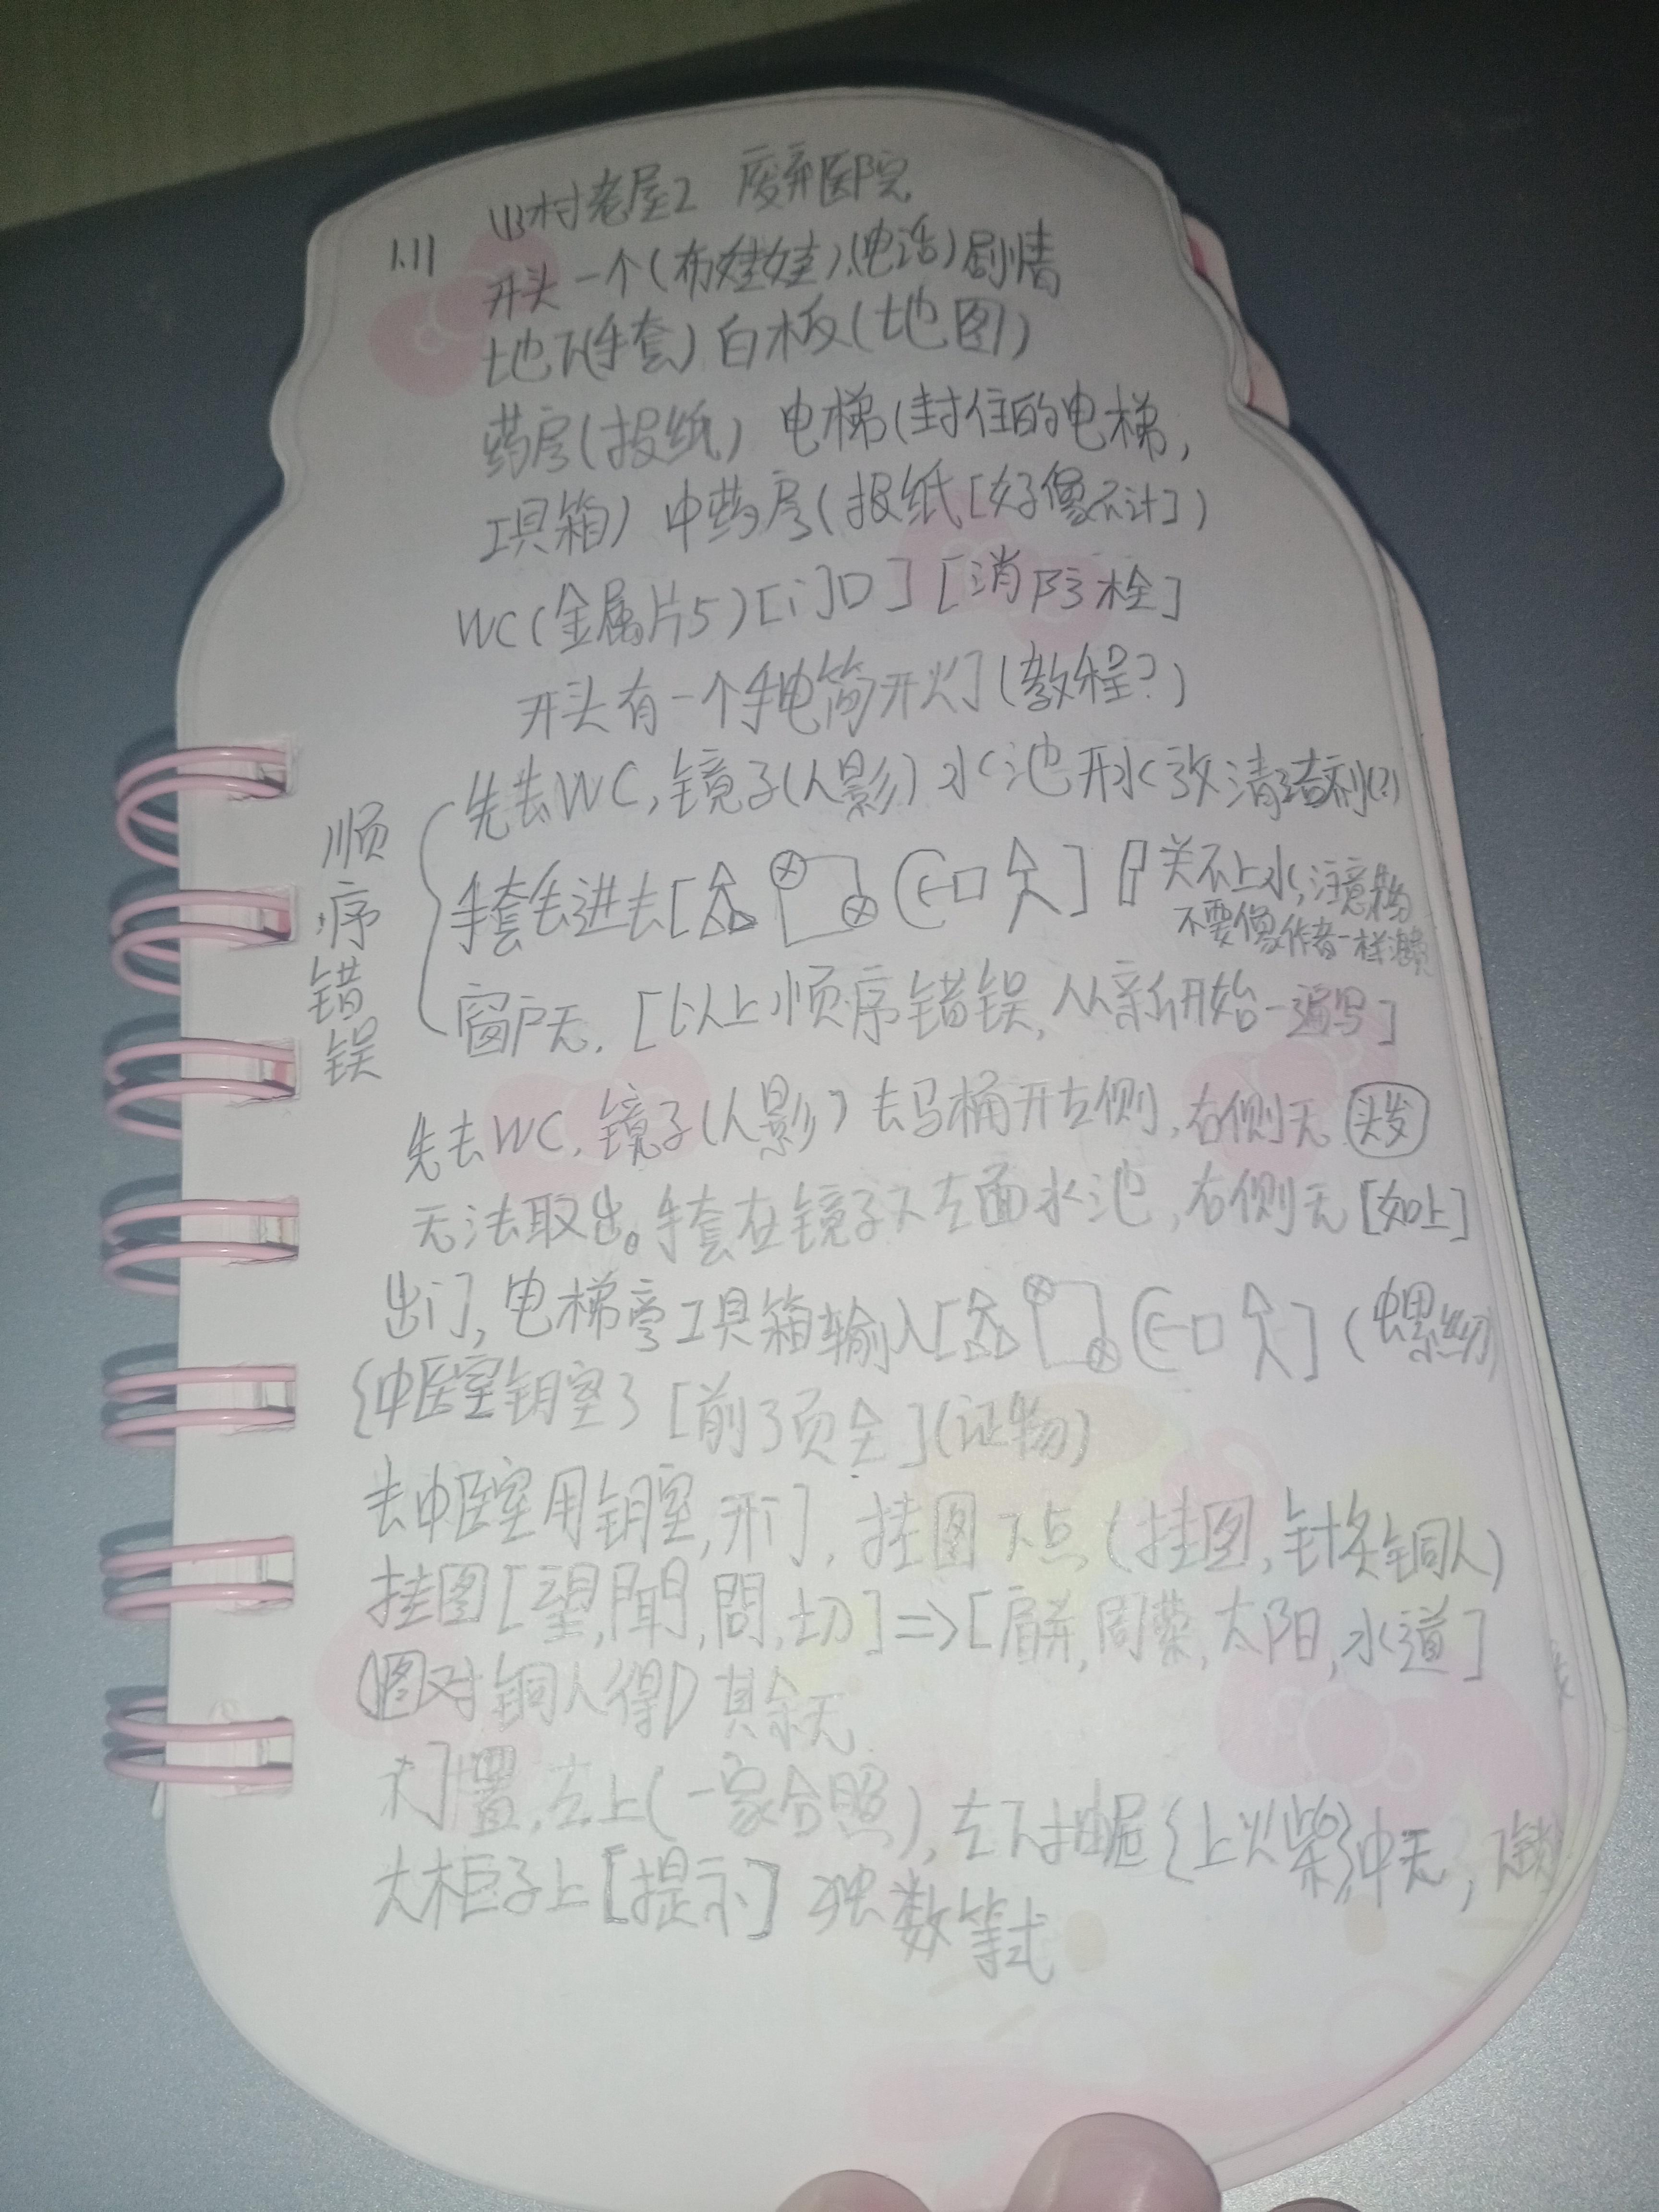 山村老屋2 废弃医院
1.11
开头一个(布娃娃)、(电话)剧情
地下(手套) 白板(地图)
药房(报纸) 电梯(封住的电梯,
工具箱) 中药房(报纸[好像不计])
WC(金属片5)[门口] [消防栓]
开头有一个手电筒开灯(教程?)
顺序错误
先去WC,镜子(人影) 水池开水放清洁剂(?)
手套丢进去[ ] 关不上水,注意
不要像作者一样浪费
窗户无. [以上顺序错误,从新开始一遍写]
先去WC,镜子(人影) 去马桶开左侧,右侧无 头发
无法取出。手套在镜子下左面水池,右侧无[如上]
出门,电梯旁工具箱输入[ ] (螺丝刀)
{中医室钥室} [前3页全](证物)
去中医室用钥室,开门,挂图下点(挂图,针灸铜人)
挂图[望,聞,問,切]=>[肩井,周荣,太阳,水道]
(图对铜人得) 其余无
左上(一家合照),左下抽屉{上火柴}中无,下
大柜子上[提示] 数等式